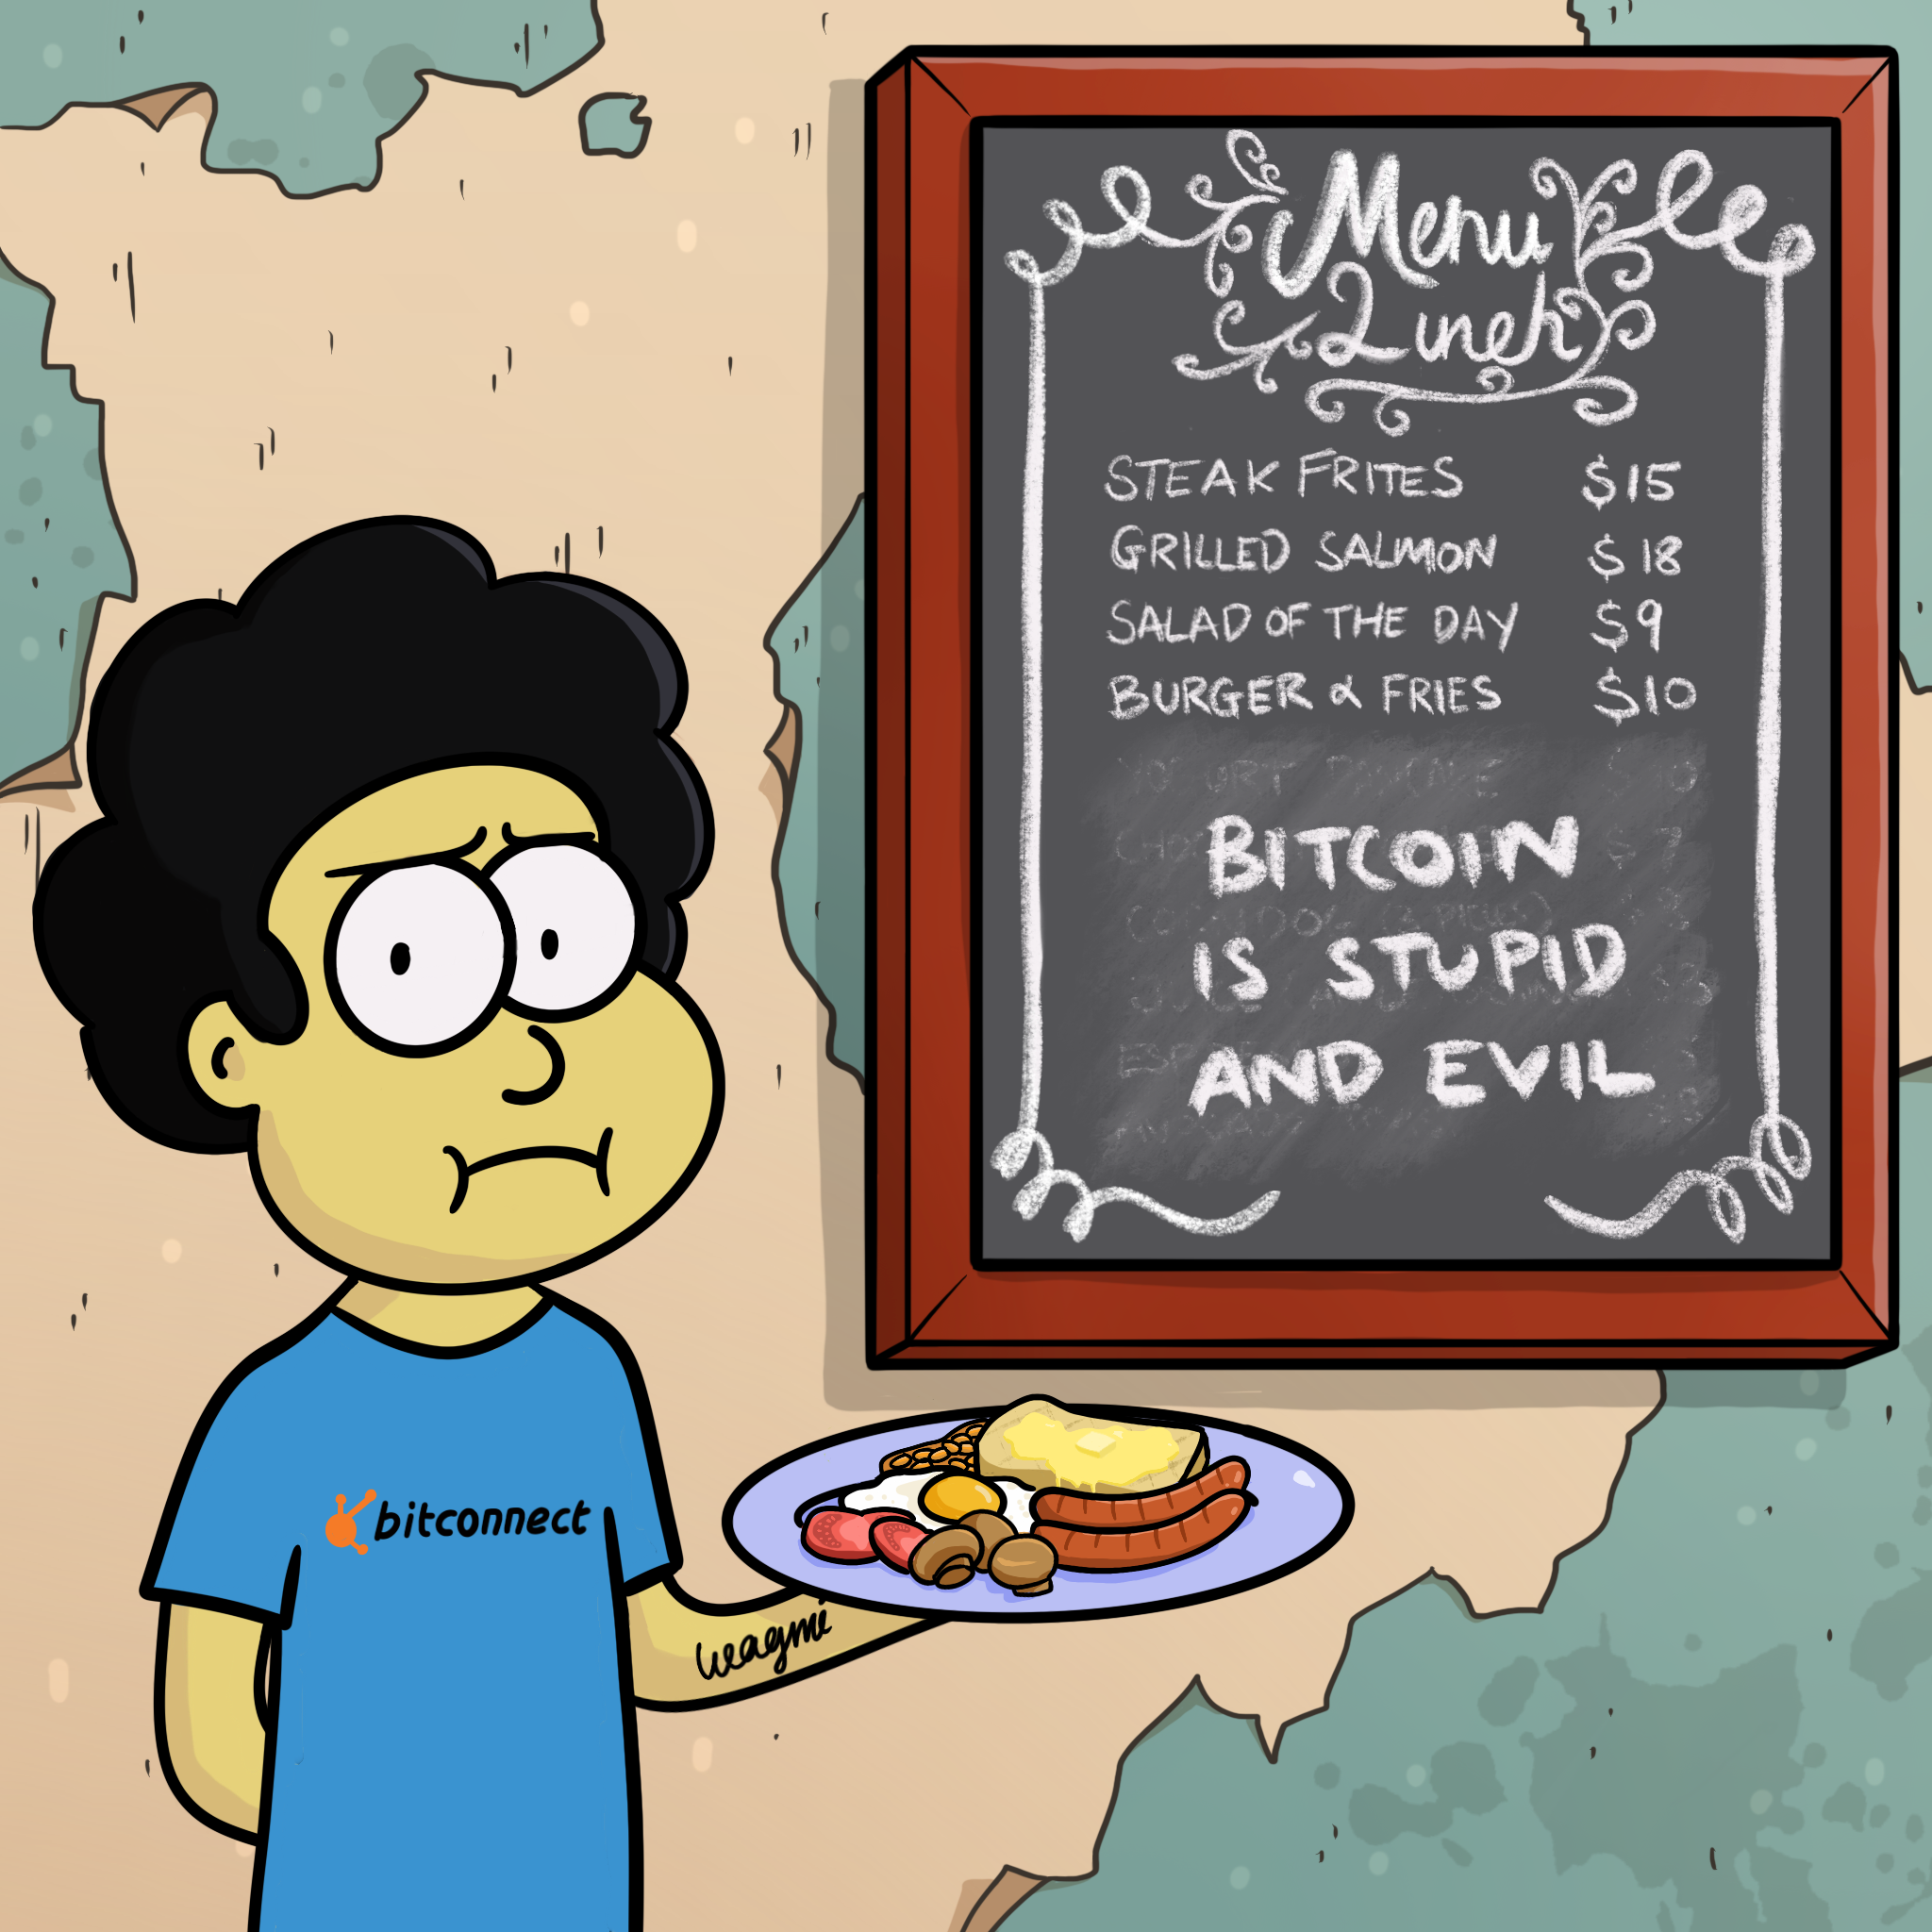 Menu
Lunch
STEAK FRITES $15
GRILLED SALMON $18
SALAD OF THE DAY $9
BURGER & FRIES $10
BITCOIN
IS STUPID
AND EVIL
bitconnect
wagmi